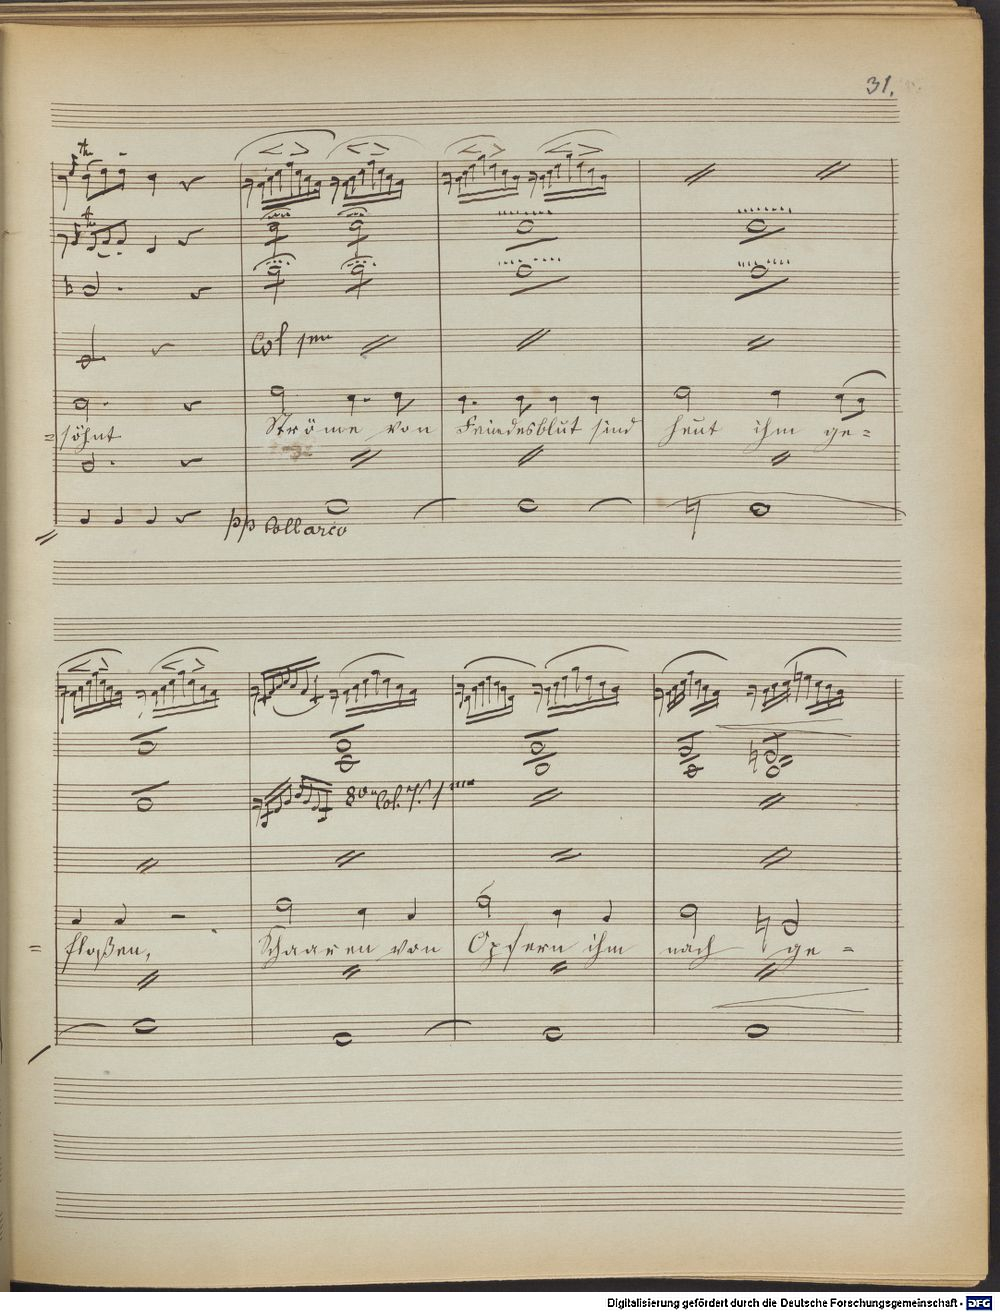 31.
Col 1mo
=söhnt Ströme von Feindesblut sind heut ihm ge=
pp Coll arco
8va Col. V. 1mo
= floßen, Schaaren von Opfern ihm nach ge =
Digitalisierung gefördert durch die Deutsche Forschungsgemeinschaft - DFG